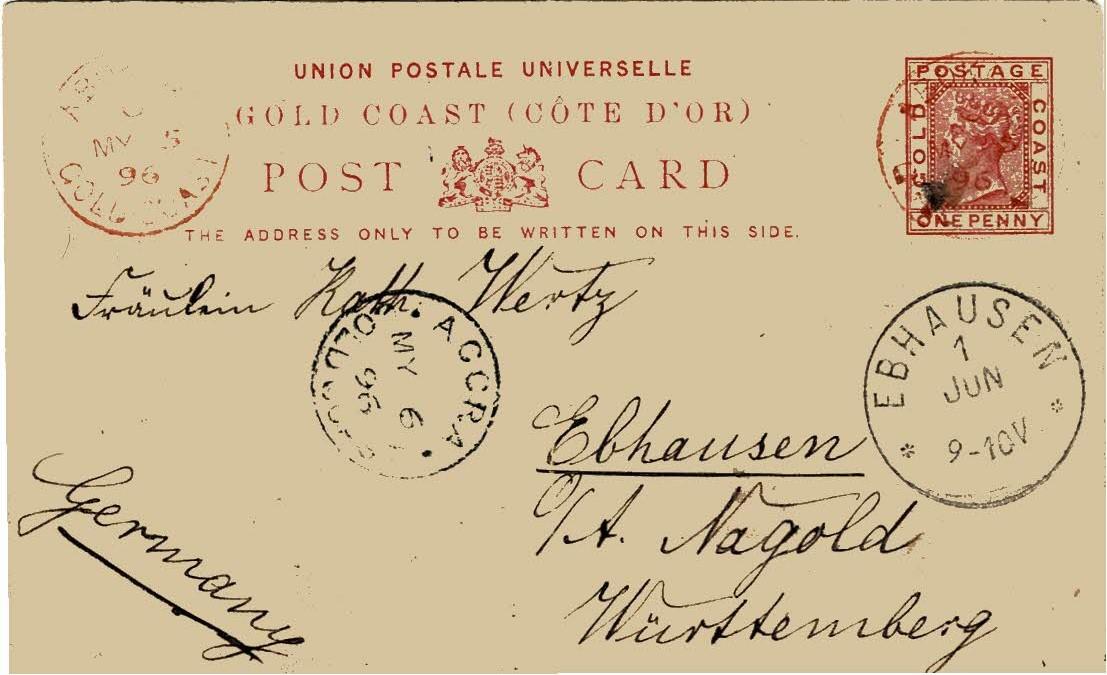 UNION POSTALE UNIVERSELLE
GOLD COAST (CÔTE D'OR)
POST CARD
THE ADDRESS ONLY TO BE WRITTEN ON THIS SIDE.
POSTAGE
GOLD
COAST
ONE PENNY
MY 5
96
GOLD COAST
96
Fräulein Kath. Wertz
ACCRA
MY 6
96
EBHAUSEN
1
JUN
9-10V
Ebhausen
O/A. Nagold
Württemberg
Germany